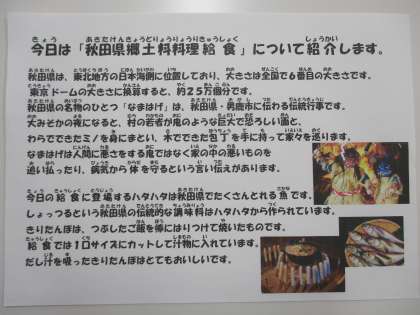 今日は「秋田県郷土料理給食」について紹介します。
秋田県は、東北地方の日本海側に位置しており、大きさは全国で6番目の大きさです。
東京ドームの大きさに換算すると、約25万個分です。
秋田県の名物のひとつ「なまはげ」は、秋田県・男鹿市に伝わる伝統行事です。
大みそかの夜になると、村の若者が鬼のような巨大で恐ろしい面と、
わらでできたミノを身にまとい、木でできた包丁を手に持って家々を巡ります。
なまはげは人間に悪さをする鬼ではなく家の中の悪いものを
追い払ったり、病気から体を守るという言い伝えがあります。
今日の給食に登場するハタハタは秋田県でたくさんとれる魚です。
しょっつるという秋田県の伝統的な調味料はハタハタから作られています。
きりたんぽは、つぶしたご飯を棒にはりつけて焼いたものです。
給食では1口サイズにカットして汁物に入れています。
だし汁を吸ったきりたんぽはとてもおいしいです。